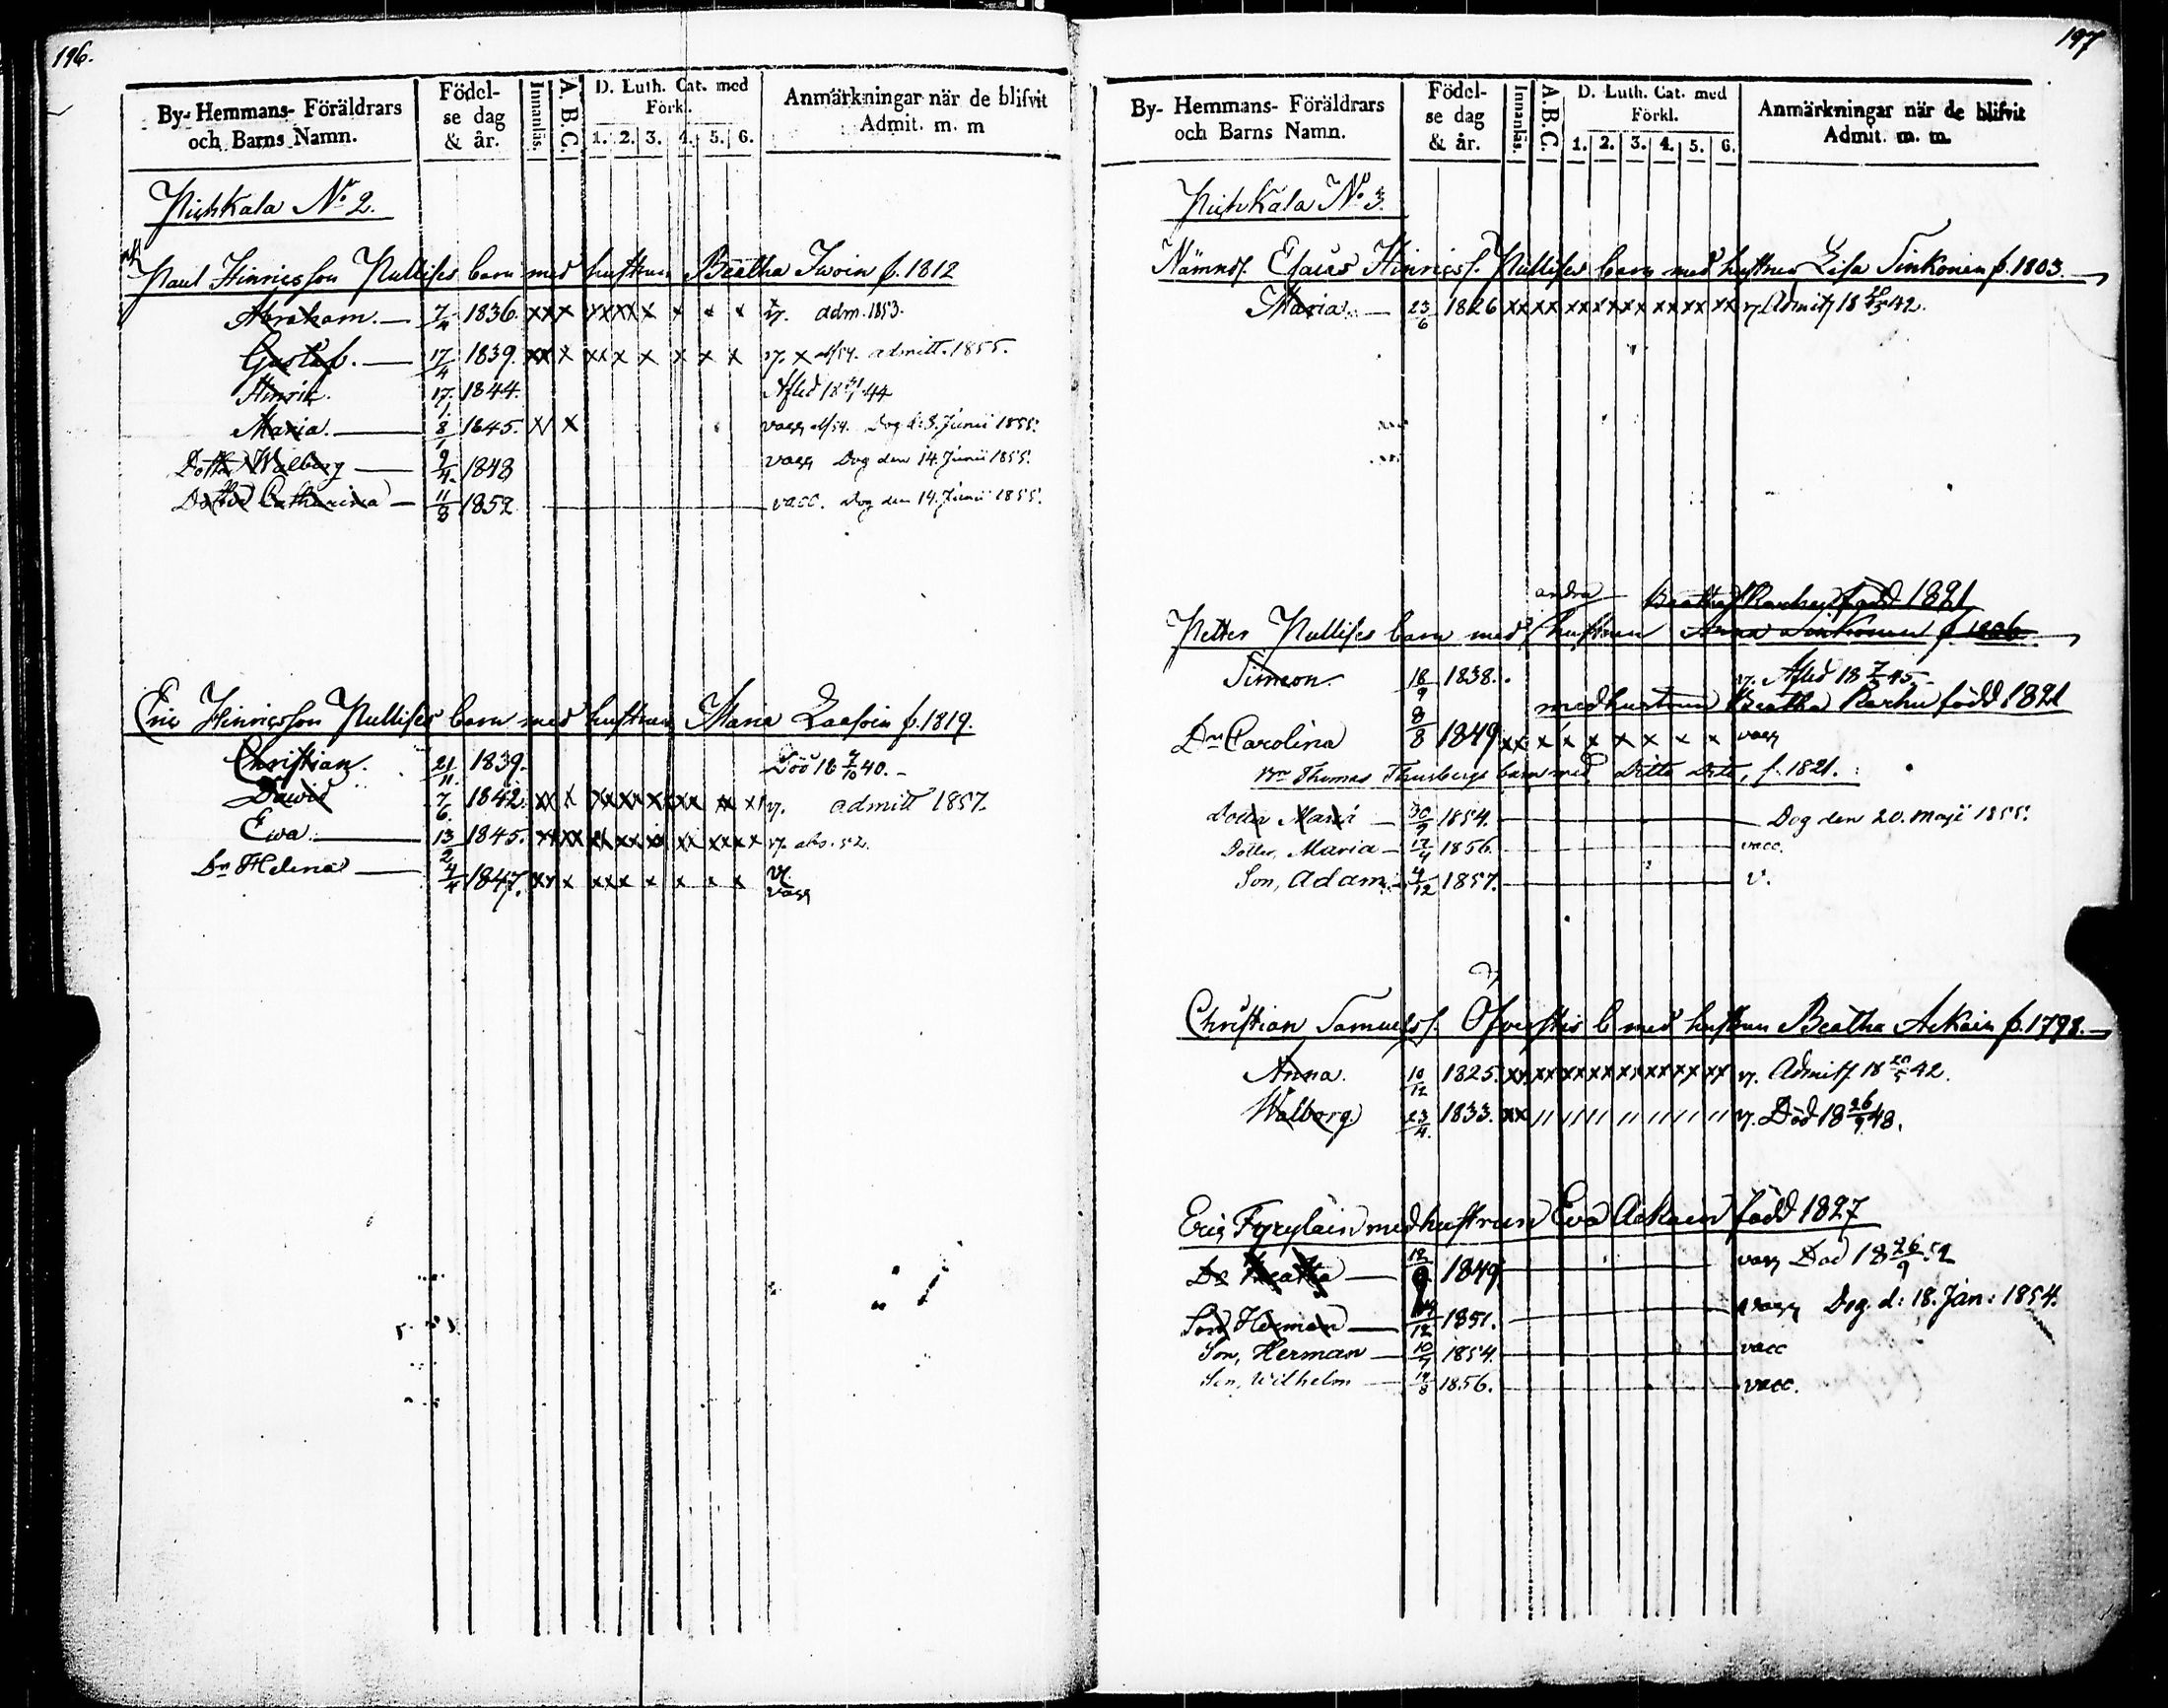 196.
By- Hemmans- Föräldrars och Barns Namn.
Födel- se dag & år.
Innanläs.
A. B. C.
D. Luth. Cat. med Förkl.
1. 2. 3. 4. 5. 6.
Anmärkningar när de blifvit Admit. m. m
Pighkala No 2.
Paul Hinricsson Pullises barn med hustrun Beatha Iwoin f. 1812
Abraham. 7/4 1836. xxx xxxxx x x x v. adm. 1853.
Gustaf. 17/4 1839. xx x xx x x x x x v. x admitt. 1855.
Hinric. 17/1 1844. Afled 18 44
Maria. 8/1 1845. xx x vacc Dog d: 3. Junii 1855.
Dotter Walborg 9/4 1848 vacc Dog den 14. Junii 1855.
Dotter Catharina 11/8 1852 vacc. Dog den 14. Junii 1855.
Eric Hinricsson Pullises barn med hustrun Maria Laasoin f. 1819.
Christian. 21/11 1839. Död 18 40.
David 7/6 1842. xx x xxxx xx xx xx x v. admitt 1857.
Ewa. 13/2 1845. xx xx xx xx xx xx xxxx v. abs. 52.
Dr Helena 4/4 1847. xx x xxx x x x x v. vacc
197
By- Hemmans- Föräldrars och Barns Namn.
Födel- se dag & år.
Innanläs.
A. B. C.
D. Luth. Cat. med Förkl.
1. 2. 3. 4. 5. 6.
Anmärkningar när de blifvit Admit. m. m.
Pighkala No 3.
Nämnd. Esaias Hinricss. Pullises barn med hustrun Lisa Sinkonen f. 1803.
Maria. 23/6 1826 xx xx xx xx xx xx xx xx v. Admitt 18 42.
andra Beatha Rarhu född 1821
Petter Pullises barn med hustrun Anna Sinkonen f. 1806.
Simeon. 18/9 1838. v. Afled 18 45.
med hustrun Beatha Rarhu född 1821
Dr Carolina 8/8 1849 xx x x x x x x x vacc
Thomas barn med Ditto Dito, f. 1821.
Dotter Maria 30/9 1854. Dog den 20. Maji 1855.
Dotter, Maria 12/4 1856. vacc.
Son, Adam. 4/12 1857. v.
Christian Samuelss. b. med hustrun Beatha Ackain f. 1798.
Anna. 10/12 1825. xx xx xx xx xx xx xx xx v. Admitt 18 42.
Walborg. 23/4 1833. xx // // // // // // // v. Död 18 26/9 48.
Eric med hustrun Eva Ackain född 1827
Dr Beatha 12/9 1849 vacc Död 18 26/9 52
Son Herman 12 1851. vacc Dog. d: 18. Jan: 1854.
Son, Herman 10/7 1854. vacc
Son, Wilhelm 1856. vacc.